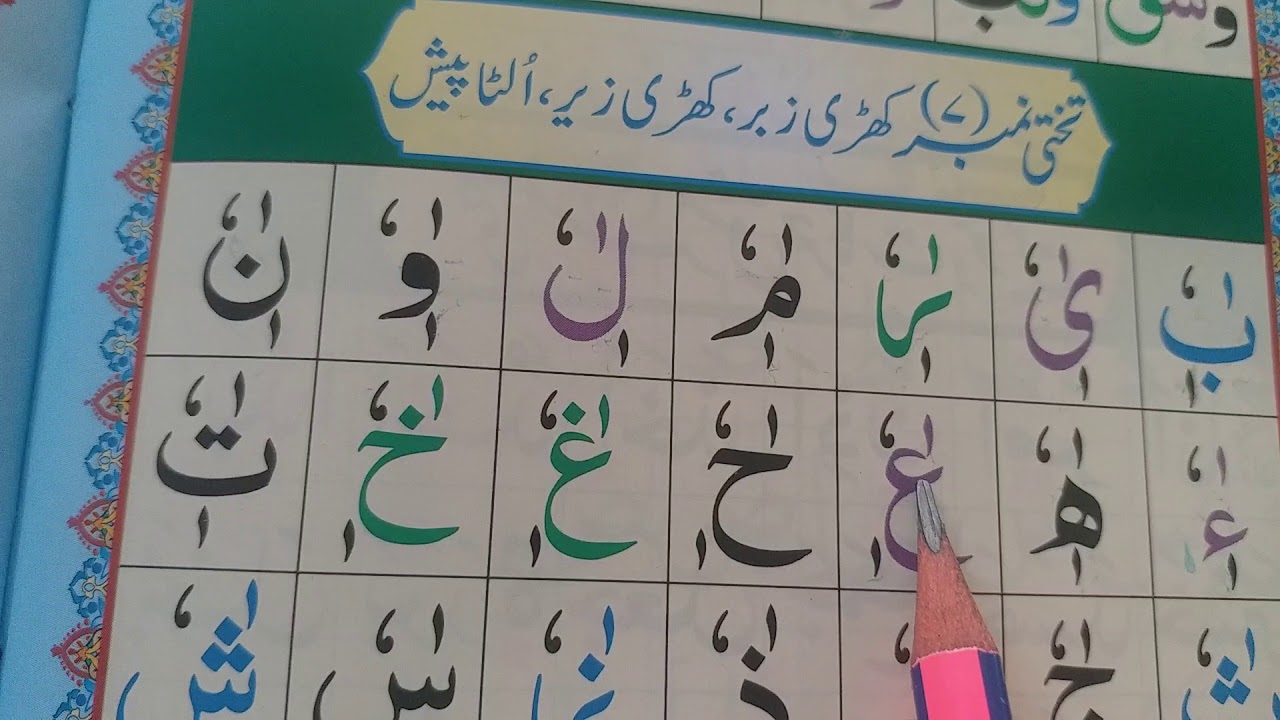 وسق
تختی نمبر (۷) کھڑی زبر، کھڑی زیر، اُلٹا پیش
بٰٖٗ یٰٖٗ رٰٖٗ مٰٖٗ لٰٖٗ وٰٖٗ نٰٖٗ
ءٰٖٗ هٰٖٗ عٰٖٗ حٰٖٗ غٰٖٗ خٰٖٗ تٰٖٗ
ثٰٗ جٰٗ ذٰٗ زٰٗ سٰٗ شٰٗ